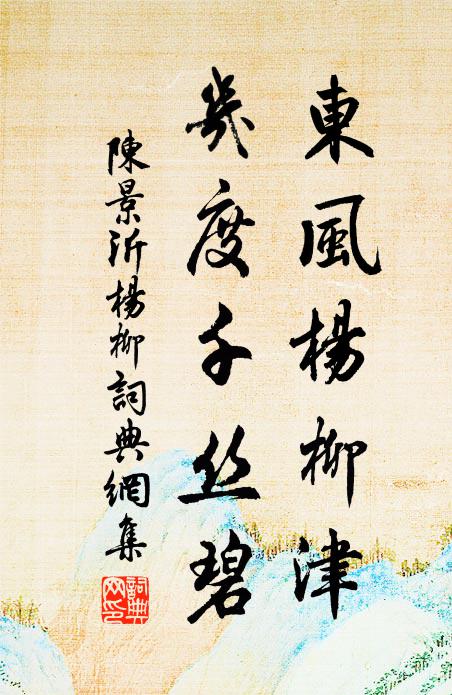 東風楊柳津
幾度千丝碧
陳景沂楊柳詞典網集
詞典